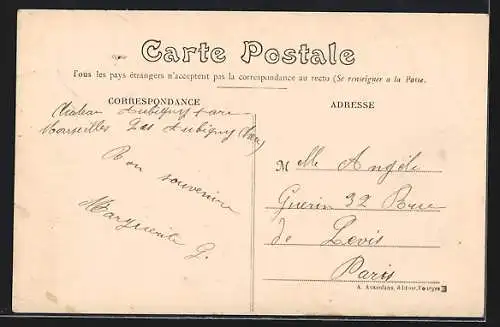 Carte Postale
Tous les pays étrangers n'acceptent pas la correspondance au recto (Se renseigner à la Poste.
CORRESPONDANCE
Château Aubigny par
Marseilles Les Aubigny (Cher)
Bon souvenir
Marguerite G.
ADRESSE
M Mlle Angèle
Guerin 32 Rue
de Levis
Paris
A. Auxenfans, Editeur, Bourges